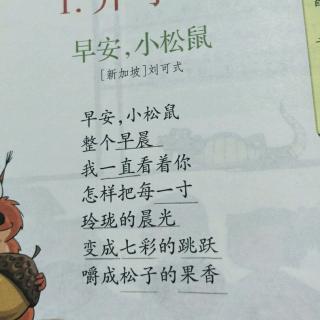 早安,小松鼠
[新加坡]刘可式
早安,小松鼠
整个早晨
我一直看着你
怎样把每一寸
玲珑的晨光
变成七彩的跳跃
嚼成松子的果香